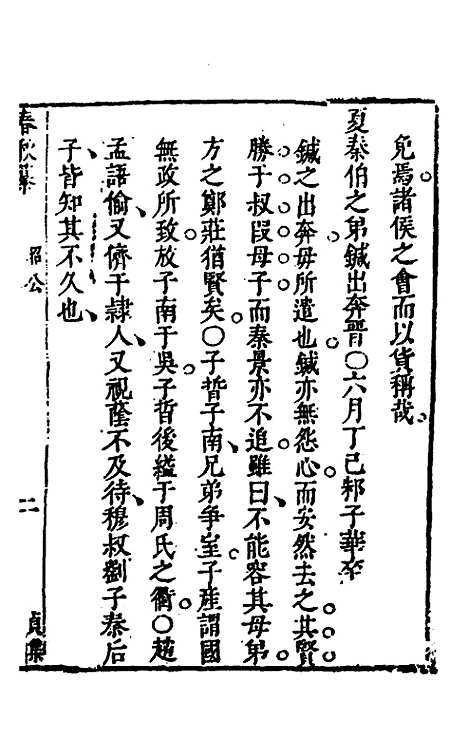 免焉諸侯之會而以貨稱哉
夏秦伯之弟鍼出奔晋〇六月丁巳邾子華卒
鍼之出奔毋所遣也鍼亦無怨心而安然去之其賢
勝于叔段母子而秦景亦不追雖曰不能容其母弟
方之鄭莊猶賢矣〇子晳子南兄弟爭室子產謂國
無政所致放子南于吳子晳後縊于周氏之衢〇趙
孟語偷又儕于隷人又視蔭不及待穆叔劉子秦后
子皆知其不久也
春秋纂
昭公
二
貞集